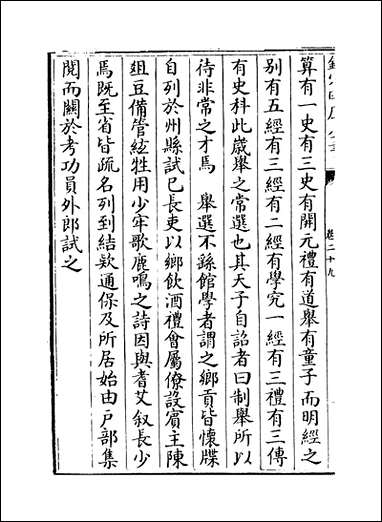 卷二十九
算有一史有三史有開元禮有道舉有童子而明經之
别有五經有三經有二經有學究一經有三禮有三傳
有史科此歲舉之常選也其天子自詔者曰制舉所以
待非常之才焉 舉選不繇館學者謂之鄉貢皆懷牒
自列於州縣試已長吏以鄉飲酒禮會屬僚設賓主陳
俎豆備管絃牲用少牢歌鹿鳴之詩因與耆艾叙長少
焉既至省皆疏名列到結欵通保及所居始由户部集
閲而關於考功員外郎試之